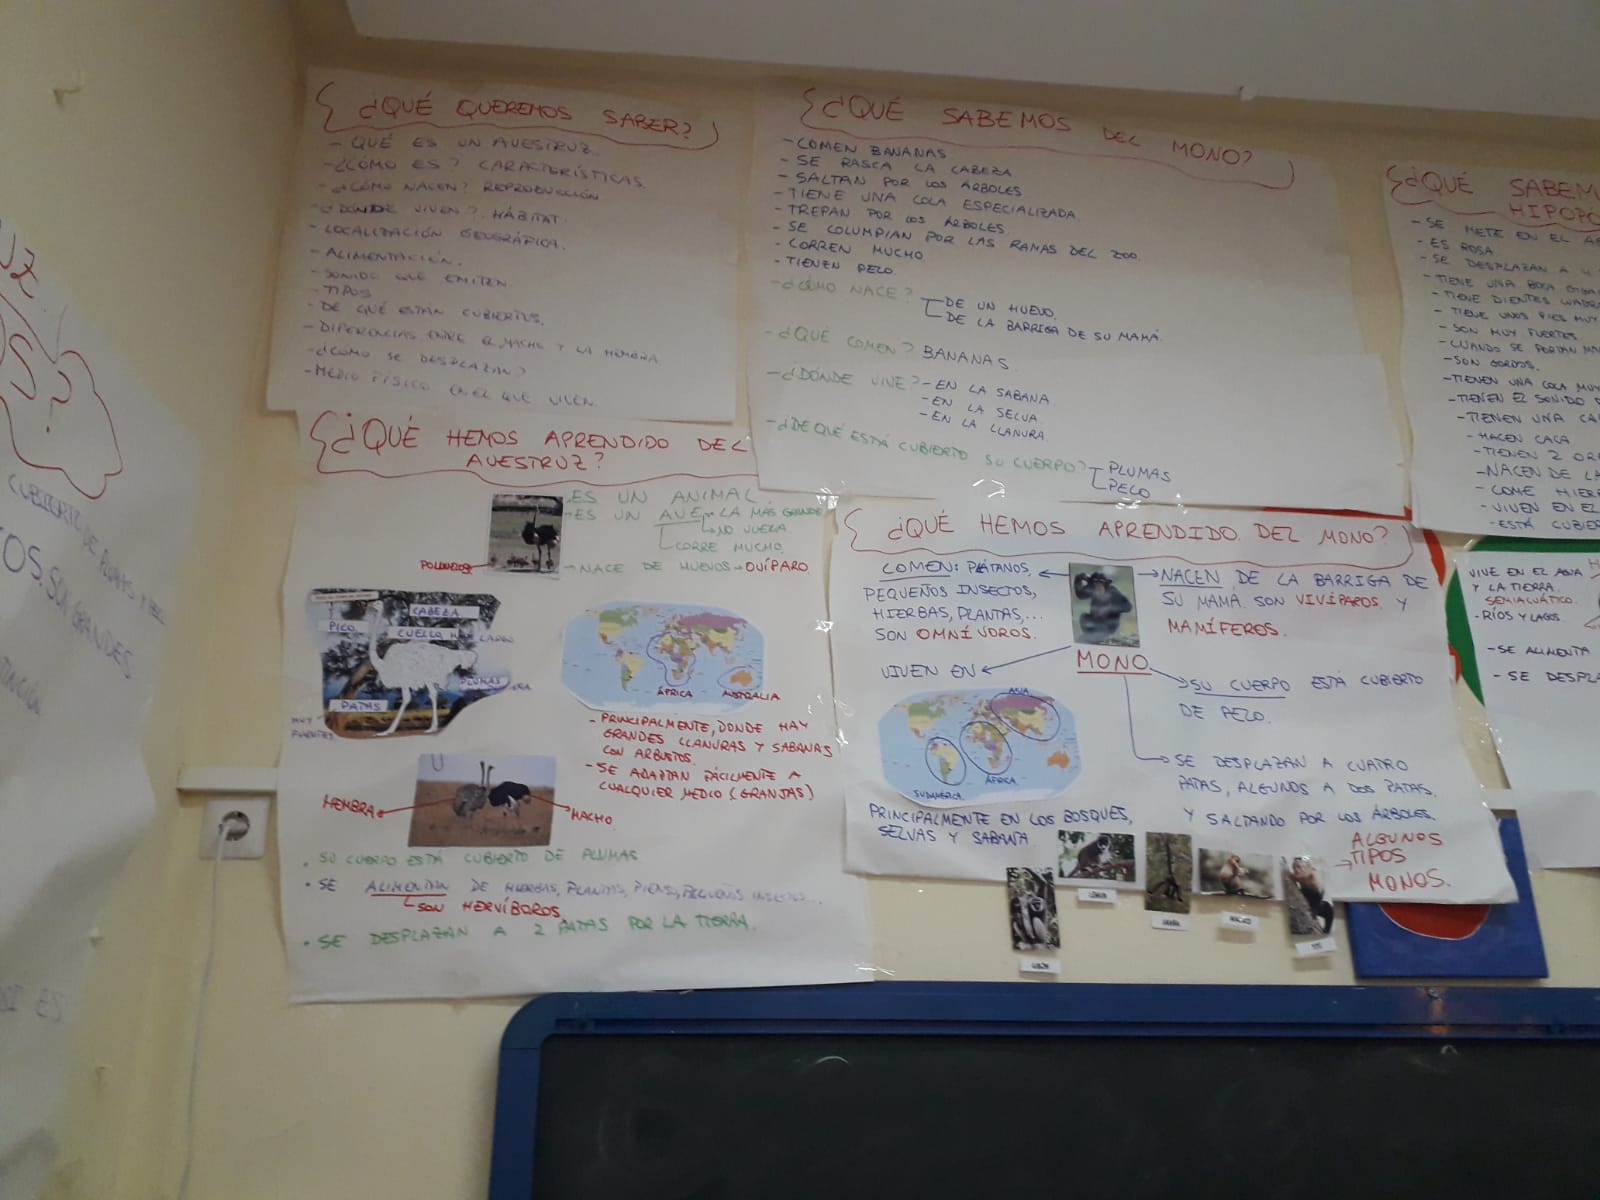 ¿QUÉ QUEREMOS SABER?
- QUÉ ES UN AVESTRUZ.
- ¿CÓMO ES? CARACTERÍSTICAS.
- ¿CÓMO NACEN? REPRODUCCIÓN
- ¿DÓNDE VIVEN? HÁBITAT.
- LOCALIZACIÓN GEOGRÁFICA.
- ALIMENTACIÓN.
- SONIDO QUE EMITEN.
- TIPOS
- DE QUÉ ESTÁN CUBIERTOS.
- DIFERENCIAS ENTRE EL MACHO Y LA HEMBRA
- ¿CÓMO SE DESPLAZAN?
- MEDIO FÍSICO EN EL QUE VIVEN.
¿QUÉ SABEMOS DEL MONO?
- COMEN BANANAS
- SE RASCA LA CABEZA
- SALTAN POR LOS ÁRBOLES
- TIENE UNA COLA ESPECIALIZADA.
- TREPAN POR LOS ÁRBOLES.
- SE COLUMPIAN POR LAS RAMAS DEL ZOO.
- CORREN MUCHO
- TIENEN PELO.
- ¿CÓMO NACE?
DE UN HUEVO.
DE LA BARRIGA DE SU MAMÁ.
- ¿QUÉ COMEN? BANANAS.
- ¿DÓNDE VIVE? - EN LA SABANA.
- EN LA SELVA.
- EN LA LLANURA.
- ¿DE QUÉ ESTÁ CUBIERTO SU CUERPO? PLUMAS
PELO
¿QUÉ SABEM
HIPOPO
- SE METE EN EL A
- ES ROSA
- SE DESPLAZAN A 4
- TIENE UNA BOCA
- TIENE DIENTES
- TIENE UNOS PIES MUY
- SON MUY FUERTES.
- CUANDO SE PORTAN
- SON GORDOS.
- TIENEN UNA COLA MUY
- TIENEN EL SONIDO
- TIENEN UNA
- HACEN CACA
- TIENEN 2
- NACEN DE LA
- COME HIER
- VIVEN EN EL
- ESTÁ CUBIER
¿QUÉ HEMOS APRENDIDO DEL
AVESTRUZ?
- ES UN ANIMAL
- ES UN AVE LA MÁS GRANDE
NO VUELA
CORRE MUCHO.
- NACE DE HUEVOS → OVÍPARO.
POLLUELOS
CABEZA
PICO
CUELLO MUY LARGO
PLUMAS
PATAS
MUY
FUERTES
ÁFRICA
AUSTRALIA
- PRINCIPALMENTE, DONDE HAY
GRANDES LLANURAS Y SABANAS
CON ARBUSTOS.
- SE ADAPTAN FÁCILMENTE A
CUALQUIER MEDIO (GRANJAS)
HEMBRA
MACHO
. SU CUERPO ESTÁ CUBIERTO DE PLUMAS
. SE ALIMENTAN DE HIERBAS, PLANTAS, PIENSO, PEQUEÑOS INSECTOS...
SON HERVÍBOROS
. SE DESPLAZAN A 2 PATAS POR LA TIERRA.
¿QUÉ HEMOS APRENDIDO DEL MONO?
COMEN: PLÁTANOS,
PEQUEÑOS INSECTOS,
HIERBAS, PLANTAS,...
SON OMNÍVOROS.
NACEN DE LA BARRIGA DE
SU MAMÁ. SON VIVÍPAROS Y
MAMÍFEROS.
MONO
VIVEN EN
ASIA
ÁFRICA
SUDAMÉRICA
PRINCIPALMENTE EN LOS BOSQUES,
SELVAS Y SABANA
SU CUERPO ESTÁ CUBIERTO
DE PELO.
SE DESPLAZAN A CUATRO
PATAS, ALGUNOS A DOS PATAS,
Y SALTANDO POR LOS ÁRBOLES.
ALGUNOS
TIPOS
MONOS.
VIVE EN EL AGUA
Y LA TIERRA.
SEMIACUÁTICO.
- RÍOS Y LAGOS.
- SE ALIMENTA
- SE DESPLA
CUBIERTO DE PLUMAS
SON GRANDES